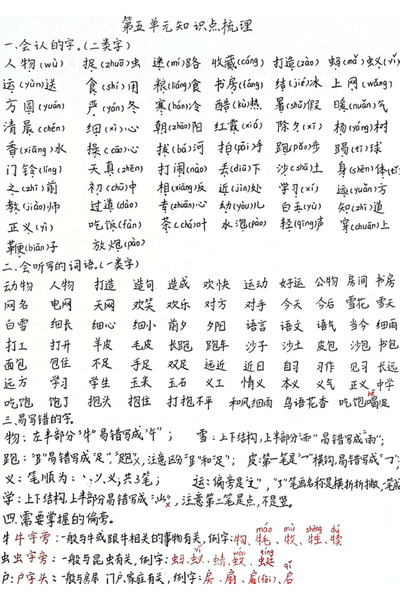 第五单元知识点梳理
一.会认的字。(二类字)
人物(wù) 捉(zhuō)虫 迷(mí)路 收藏(cáng) 打造(zào) 蚂(mǎ)蚁(yǐ)
运(yùn)送 食(shí)用 粮(liáng)食 书房(fáng) 结(jié)冰 上网(wǎng)
方圆(yuán) 严(yán)冬 寒(hán)冷 酷(kù)热 暑(shǔ)假 暖(nuǎn)气
清晨(chén) 细(xì)心 朝(zhāo)阳 红霞(xiá) 除夕(xī) 杨(yáng)树
香(xiāng)水 操(cāo)心 拔(bá)河 拍(pāi)手 跑(pǎo)步 踢(tī)球
门铃(líng) 天真(zhēn) 打闹(nào) 丢(diū)下 沙(shā)土 身(shēn)体(tǐ)
之(zhī)前 初(chū)中 相(xiāng)反 近(jìn)处 学习(xí) 远(yuǎn)方
教(jiào)师 过道(dào) 专(zhuān)心 幼(yòu)儿 白玉(yù) 知(zhī)道
正义(yì) 吃饭(fàn) 茶(chá)叶 水泡(pào) 轻(qīng)声 穿(chuān)上
鞭(biān)子 放炮(pào)
二.会听写的词语。(一类字)
动物 人物 打造 造句 造成 欢快 运动 好运 公物 房间 书房
网名 电网 天网 欢笑 欢乐 对方 对手 今天 今后 雪花 雪天
白雪 细长 细心 细小 前夕 夕阳 语言 语文 语气 当今 细雨
打工 打开 羊皮 毛皮 长跑 跑车 沙子 沙土 皮包 沙包 书包
面包 包住 不足 手足 双足 远近 近日 自习 习作 见习 长远
远方 学习 学生 玉米 玉石 义工 情义 本义 义气 正义 中学
吃饱 饱了 抱头 抱住 打抱不平 和风细雨 鸟语花香 吃饱喝足
三.易写错的字。
物：左半部分"牛"易错写成"牛"； 雪：上下结构，上半部分"⻗"易错写成"雨"；
义：笔顺为：丶ノ乂，共3笔；
四.需要掌握的偏旁。
牛 牛字旁：一般与牛或跟牛相关的事物有关，例字：物、牦、牧、牲、犊
虫 虫字旁：一般与昆虫有关，例字：蚂、蚁、蜻、蚊、蜓
户：户字头：一般与房屋 门户、家庭有关，例字：房、扇、扈(hù)、启